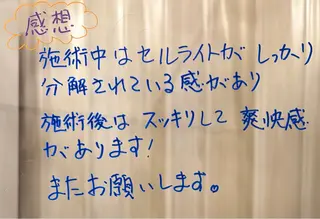 感想
施術中はセルライトがしっかり
分解されている感があり
施術後はスッキリして爽快感
があります!
またお願いします。